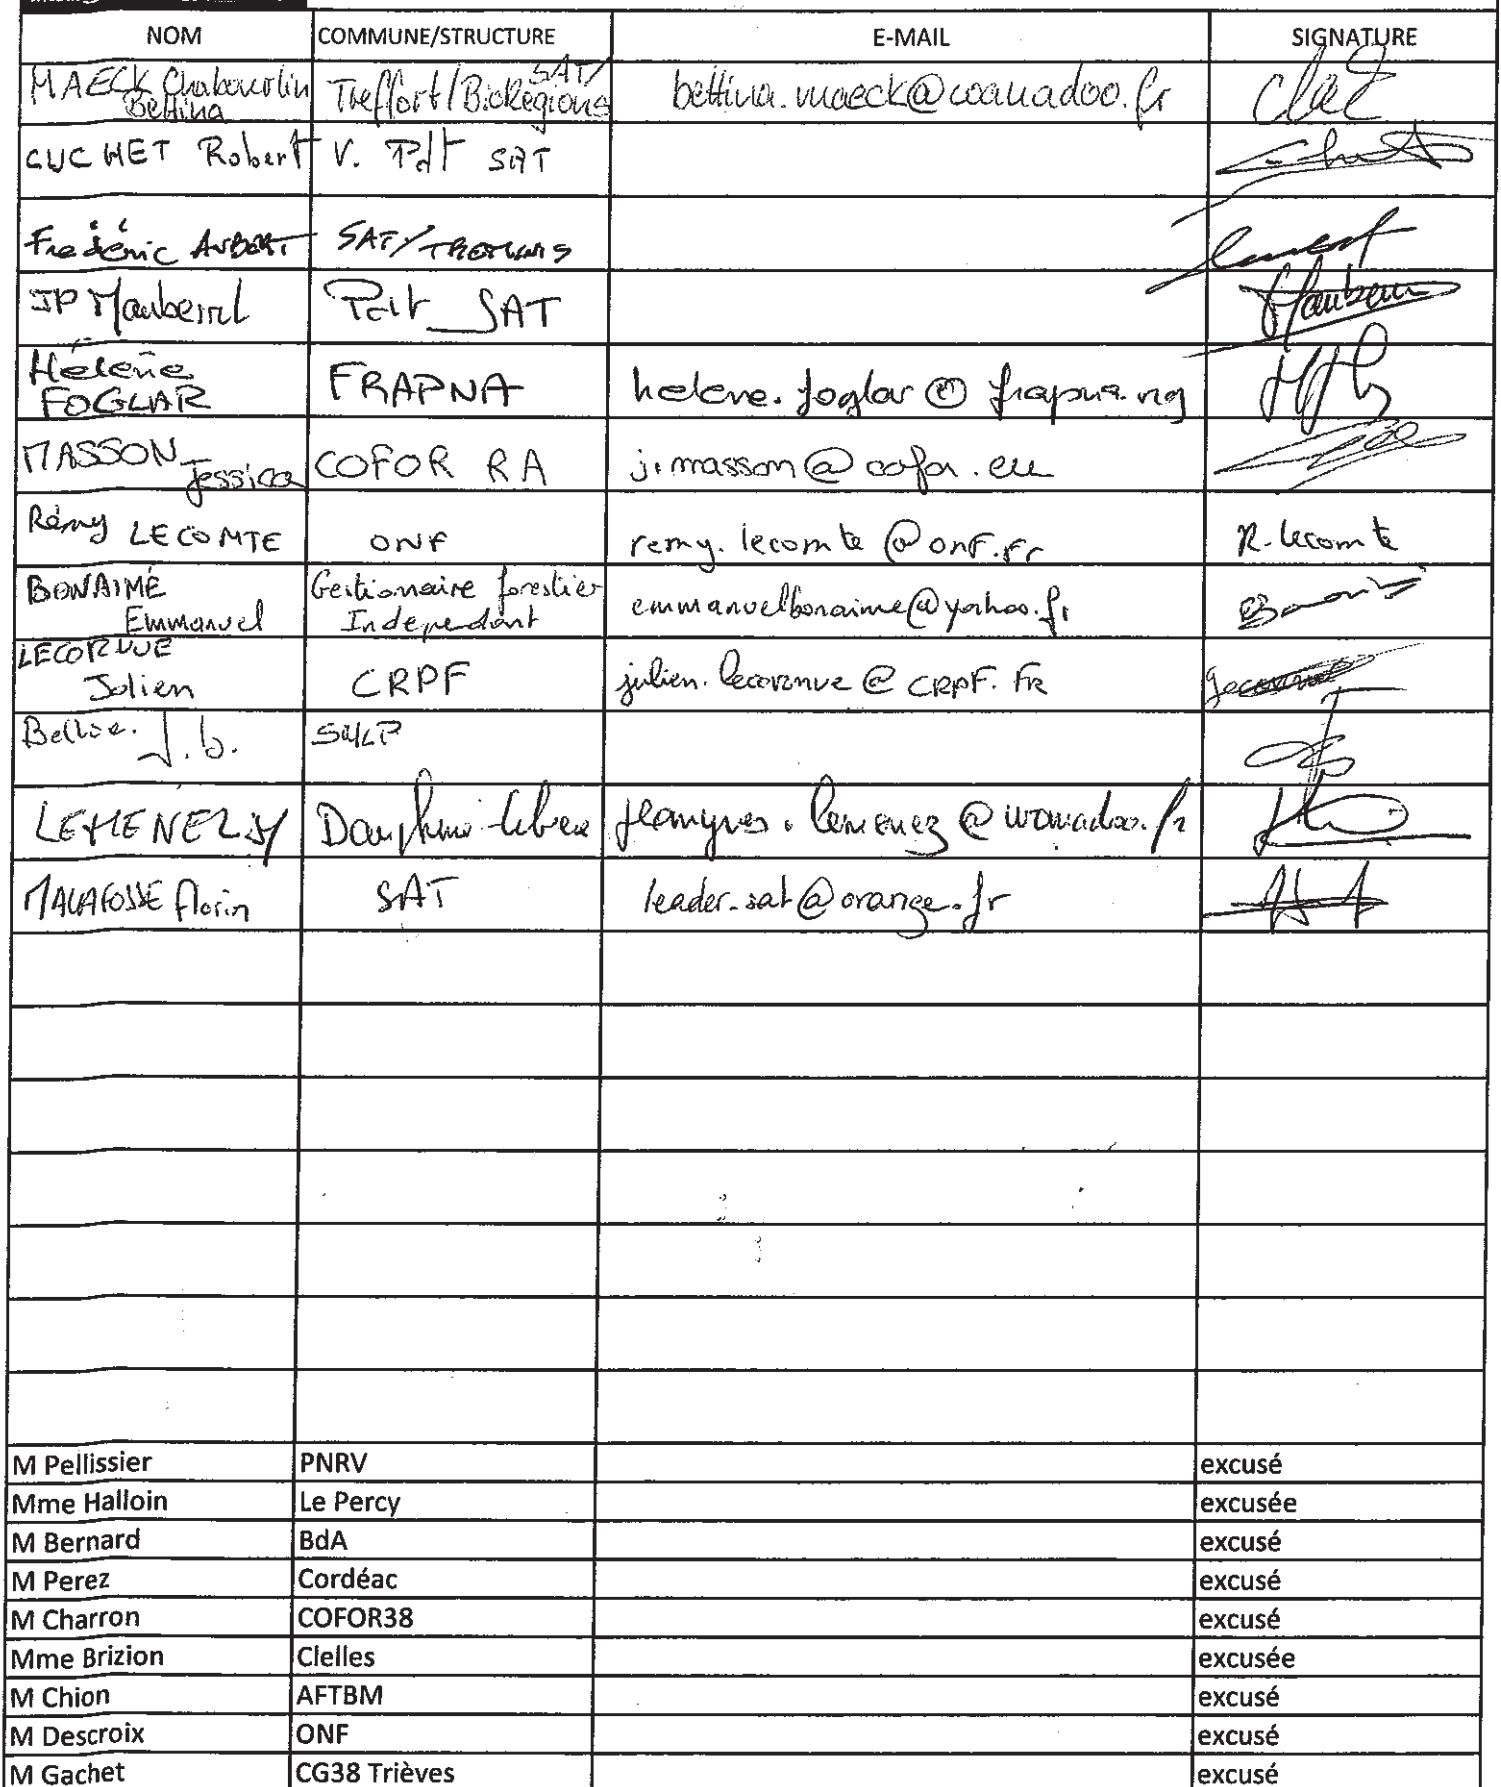 NOM COMMUNE/STRUCTURE E-MAIL SIGNATURE
MAECK Chabourlin Bettina Treffort/BioRégions SAT/ bettina.maeck@wanadoo.fr
CUCHET Robert V. Pdt SAT
Frédéric AUBERT SAT/TREMINIS
JP Mauberret Pdt SAT Mauberret
Hélène FOGLAR FRAPNA helene.foglar@frapna.org
MASSON Jessica COFOR RA j.masson@cofor.eu
Rémy LECOMTE ONF remy.lecomte@onf.fr R.lecomte
BONAIMÉ Emmanuel Gestionnaire forestier Indépendant emmanuelbonaime@yahoo.fr
LECORNUE Julien CRPF julien.lecornue@CRPF.FR
J.b.
LEMENEZ JY jeanyves.lemenez@wanadoo.fr
MALAFOSSE Florin SAT leader-sat@orange.fr
M Pellissier PNRV excusé
Mme Halloin Le Percy excusée
M Bernard BdA excusé
M Perez Cordéac excusé
M Charron COFOR38 excusé
Mme Brizion Clelles excusée
M Chion AFTBM excusé
M Descroix ONF excusé
M Gachet CG38 Trièves excusé